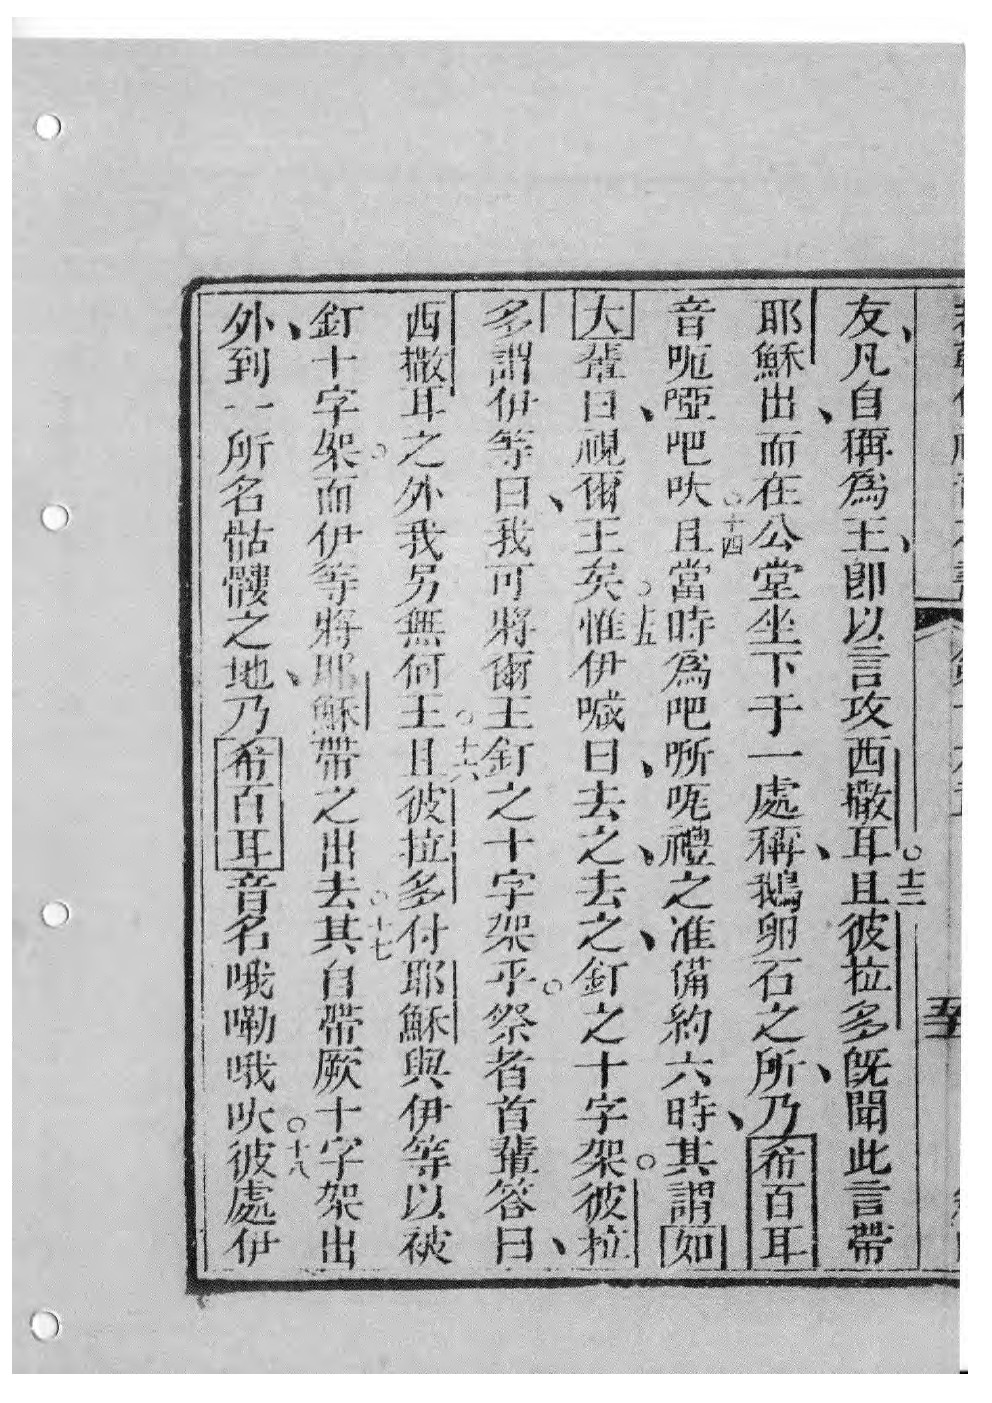 友、凡自稱為王、卽以言攻西撒耳。○十三且彼拉多旣聞此言帶
耶穌出、而在公堂坐下于一處稱、鵝卵石之所、乃希百耳
音呃啞吧吠。○十四且當時為吧𠵽呃禮之准備約六時、其謂如
大輩曰、視爾王矣。○十五惟伊喊曰、去之、去之、釘之十字架。○彼拉
多謂伊等曰、我可將爾王釘之十字架乎。○祭者首輩答曰、
西撒耳之外我另無何王。○十六且彼拉多付耶穌與伊等以被
釘十字架。○而伊等將耶穌帶之出去。○十七其自帶厥十字架出
外、到一所名骷髏之地、乃希百耳音名哦嘞哦吠。○十八彼處伊